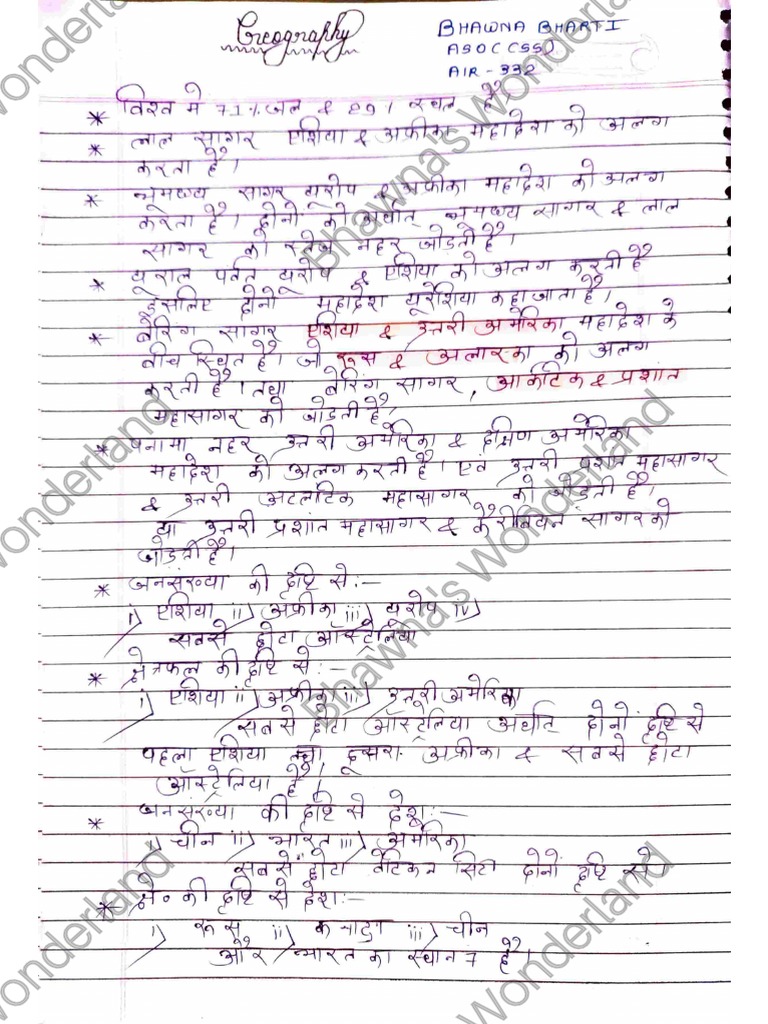 Geography
BHAWNA BHARTI
ASO (CSS)
AIR - 332
* विश्व मे 71% जल & 29% स्थल है
* लाल सागर एशिया & अफ्रीका महादेश को अलग
करता है।
* भूमध्य सागर यूरोप & अफ्रीका महादेश को अलग
करता है। दोनो को अर्थात् भूमध्य सागर & लाल
सागर को स्वेज नहर जोडती है।
* यूराल पर्वत यूरोप & एशिया को अलग करती है
इसलिए दोनो महादेश यूरेशिया कहा जाता है।
* बेरिंग सागर एशिया & उत्तरी अमेरिका महादेश के
बीच स्थित है। जो रूस & अलास्का को अलग
करती है। तथा बेरिंग सागर, आर्कटिक & प्रशांत
महासागर को जोडती है,
* पनामा नहर उत्तरी अमेरिका & दक्षिण अमेरिका
महादेश को अलग करती है। एवं उत्तरी प्रशांत महासागर
& उत्तरी अटलांटिक महासागर को जोडती है।
या उत्तरी प्रशांत महासागर & केरीबियन सागर को
जोडती है।
* जनसंख्या की दृष्टि से:-
i) एशिया ii) अफ्रीका iii) यूरोप iv)
सबसे छोटा ऑस्ट्रेलिया
* क्षेत्रफल की दृष्टि से:-
i) एशिया ii) अफ्रीका iii) उत्तरी अमेरिका
सबसे छोटा ऑस्ट्रेलिया अर्थात् दोनों दृष्टि से
पहला एशिया तथा दूसरा अफ्रीका & सबसे छोटा
ऑस्ट्रेलिया है।
* जनसंख्या की दृष्टि से देश:-
i) चीन ii) भारत iii) अमेरिका
सबसे छोटा वेटिकन सिटी दोनों दृष्टि से।
* क्षे० की दृष्टि से देश:-
i) रूस ii) कनाडा iii) चीन
और भारत का स्थान 7 है।
Bhawna's Wonderland
Bhawna's Wonderland